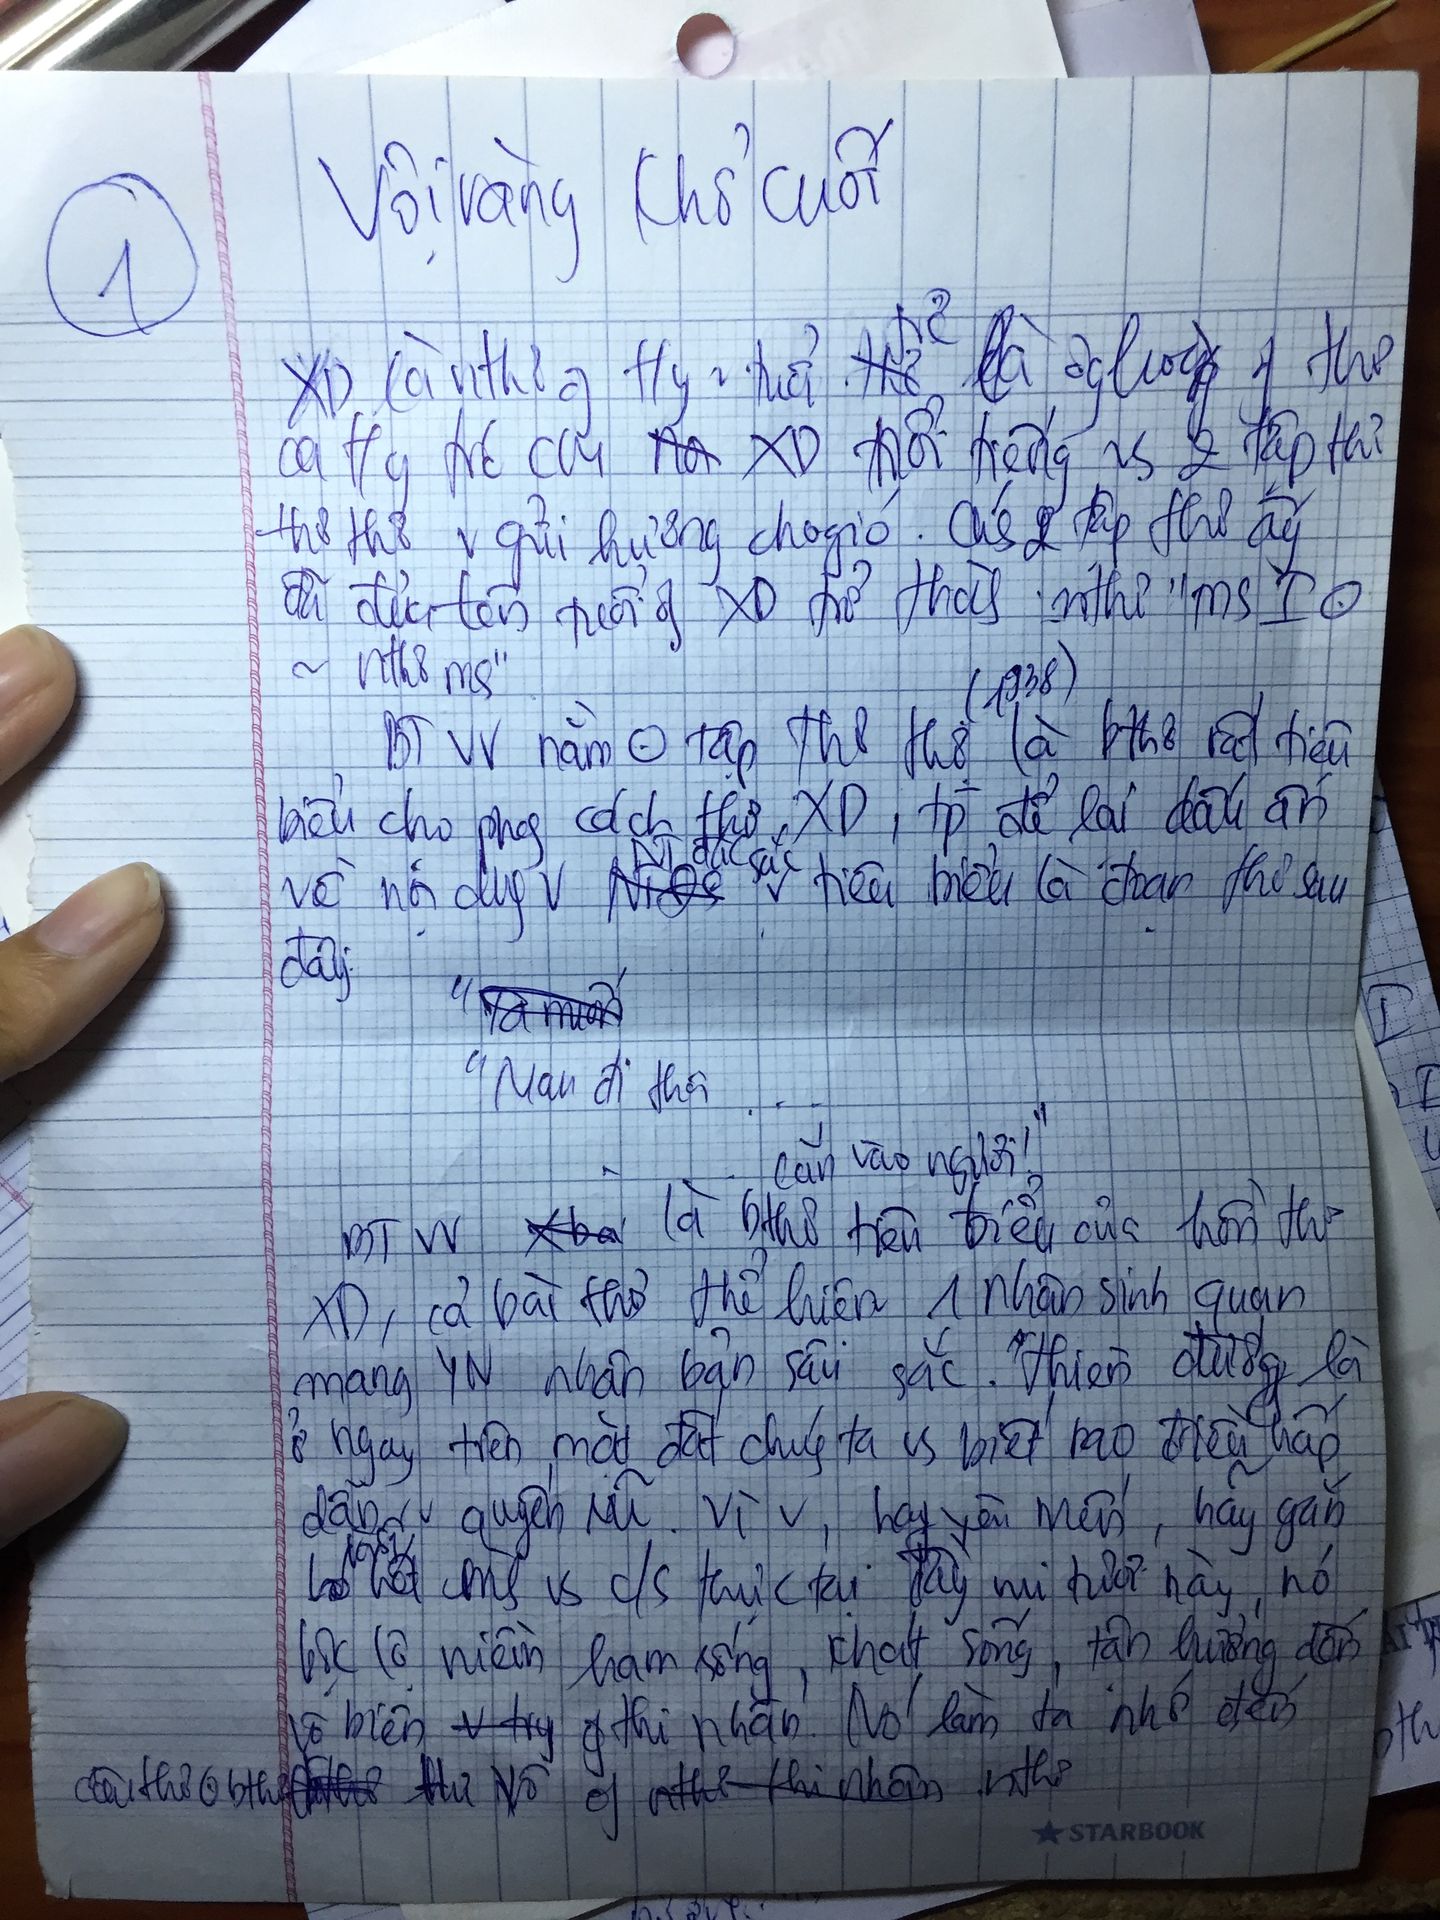 1
Vội vàng khổ cuối
XD là nthơ of ty v tuổi trẻ là of thơ
ca ty XD nổi tiếng vs 2 tập thơ
thơ thơ v gửi hương cho gió. 2 tập thơ ấy
đã đưa tên tuổi of XD trở thàh nthơ "ms I ⊙
~ nthơ ms"
(1938)
BT VV nằm ⊙ tập thơ thơ là bthơ rất tiêu
biểu cho phog cách thơ XD, tp để lại dấu ấn
về nội dug v NT đặc sắc v tiêu biểu là đoạn thơ sau
đây:
"Mau đi thôi ....
... cắn vào ngươi!"
BT VV là bthơ tiêu biểu của hồn thơ
XD, cả bài thơ thể hiện 1 nhân sinh quan
mang YN nhân bản sâu sắc. "Thiên đườg là
ở ngay trên mặt đất chúg ta vs biết bao điều hấp
dẫn v quyến rũ. Vì v, hãy yêu mến, hãy gắn
hết mìh vs c/s thực tại đầy vui tươi này, nó
bộc lộ niềm ham sống, khát sống, tận hưởng đến
vô biên of thi nhân. Nó làm ta nhớ đến
câu thơ ⊙ bthơ of nthơ
STARBOOK